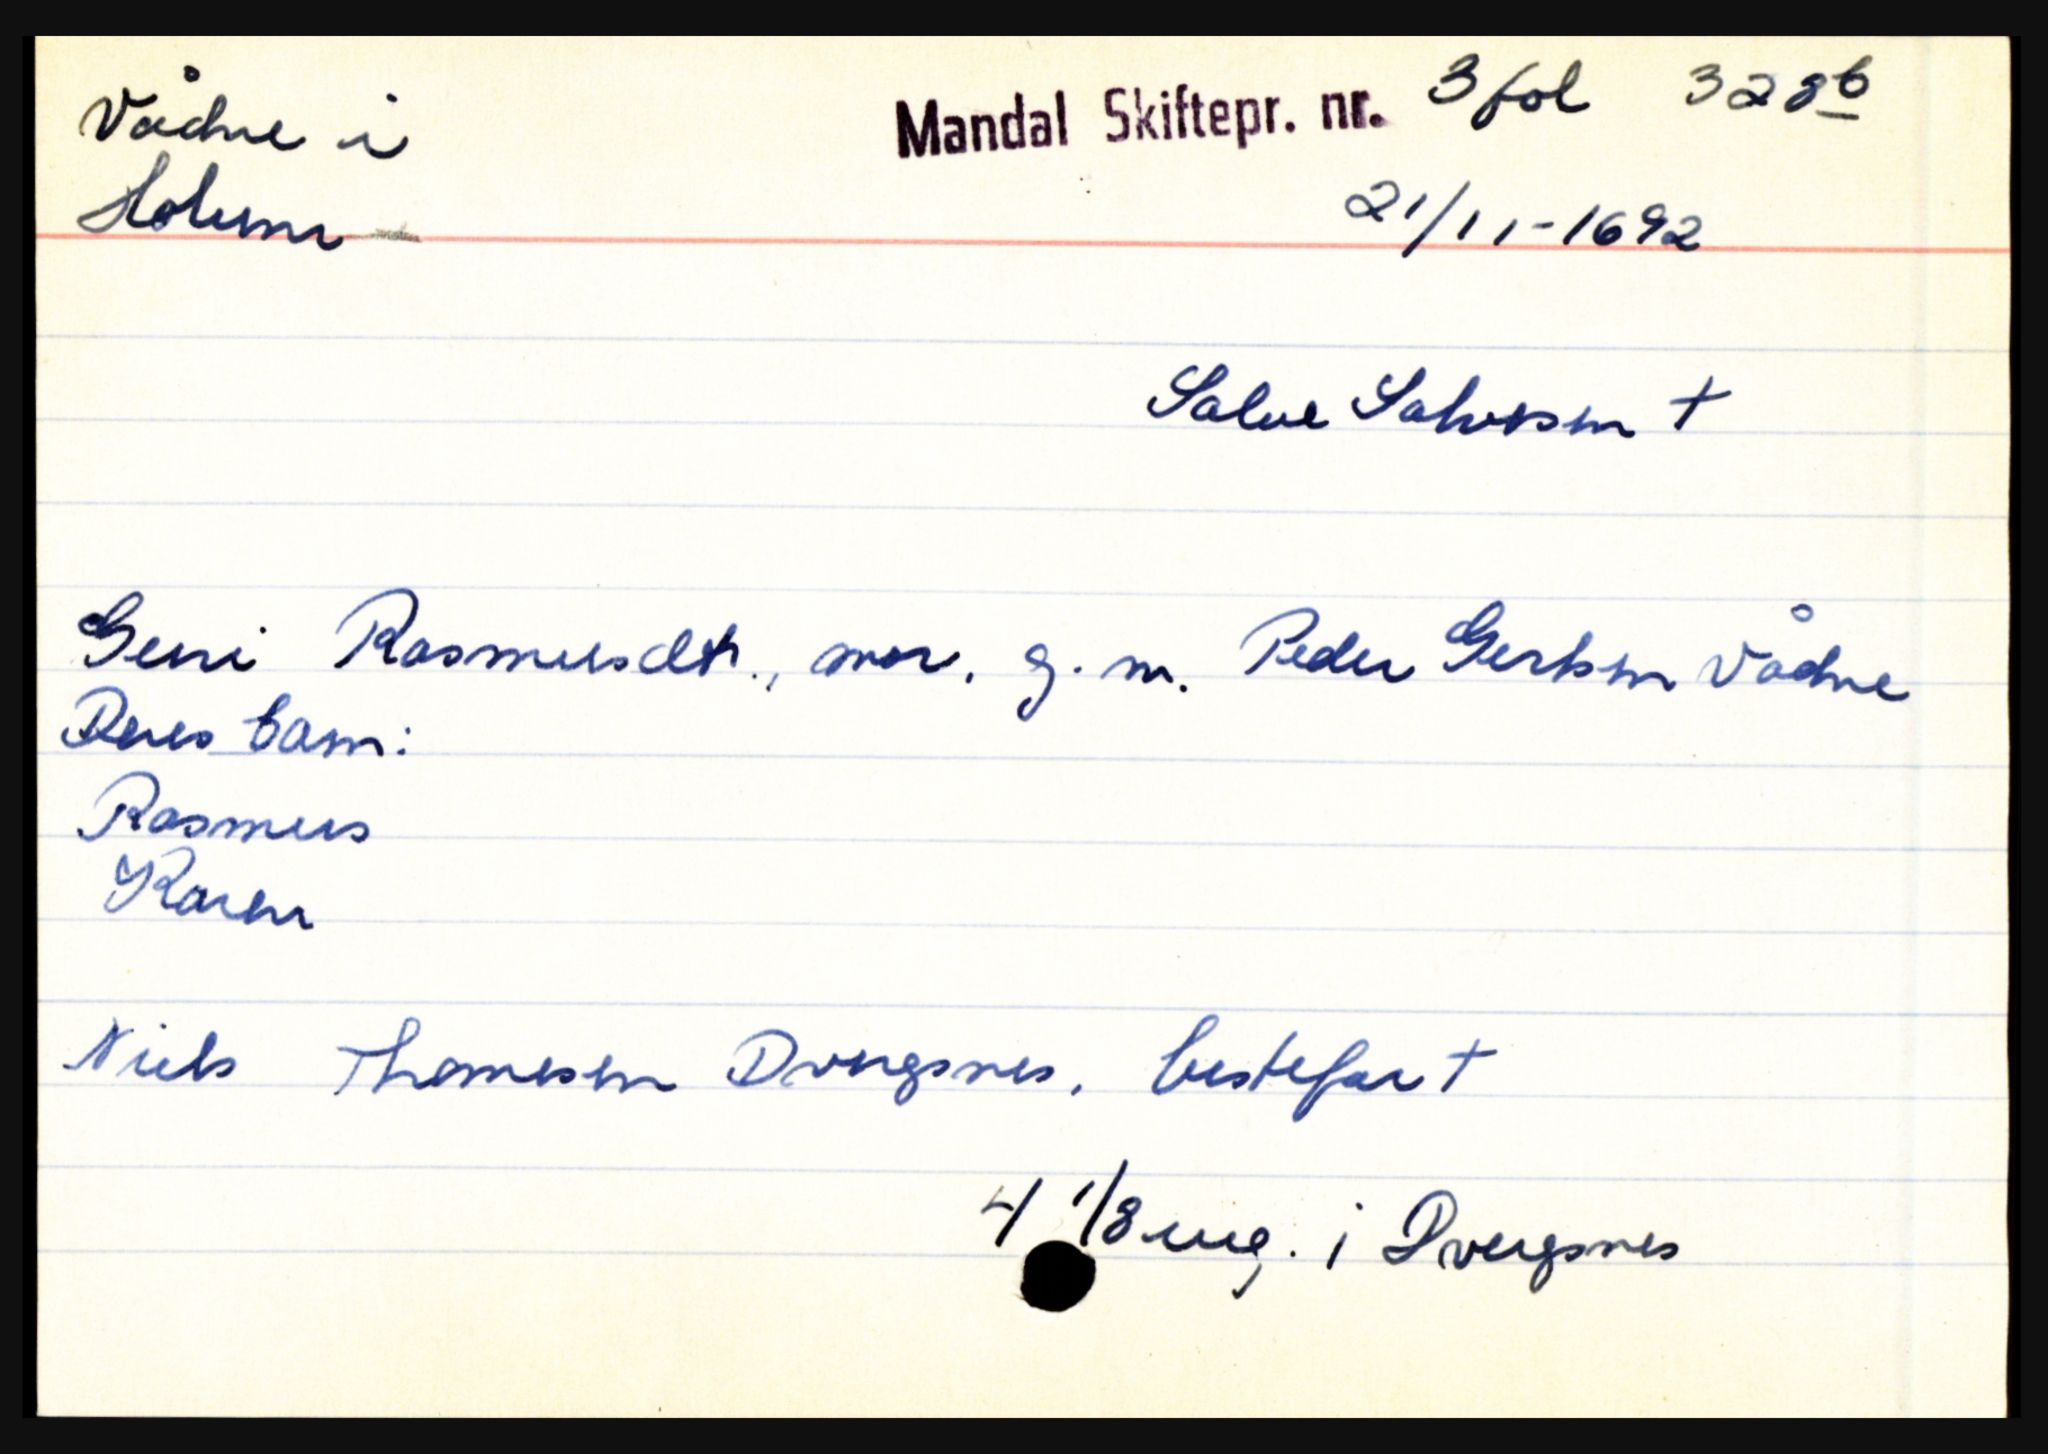 Vådne i Mandal Skiftepr. nr. 3 fol 328b
Holum 21/11-1692
Salve Salvesen †
Geni Rasmusdtr., mor, g. m. Peder Gertsen Vådne
Deres barn:
Rasmus
Karen
Niels Thomesen Dvergsnes, bestefar †
4 1/8 eng. i Dvergsnes